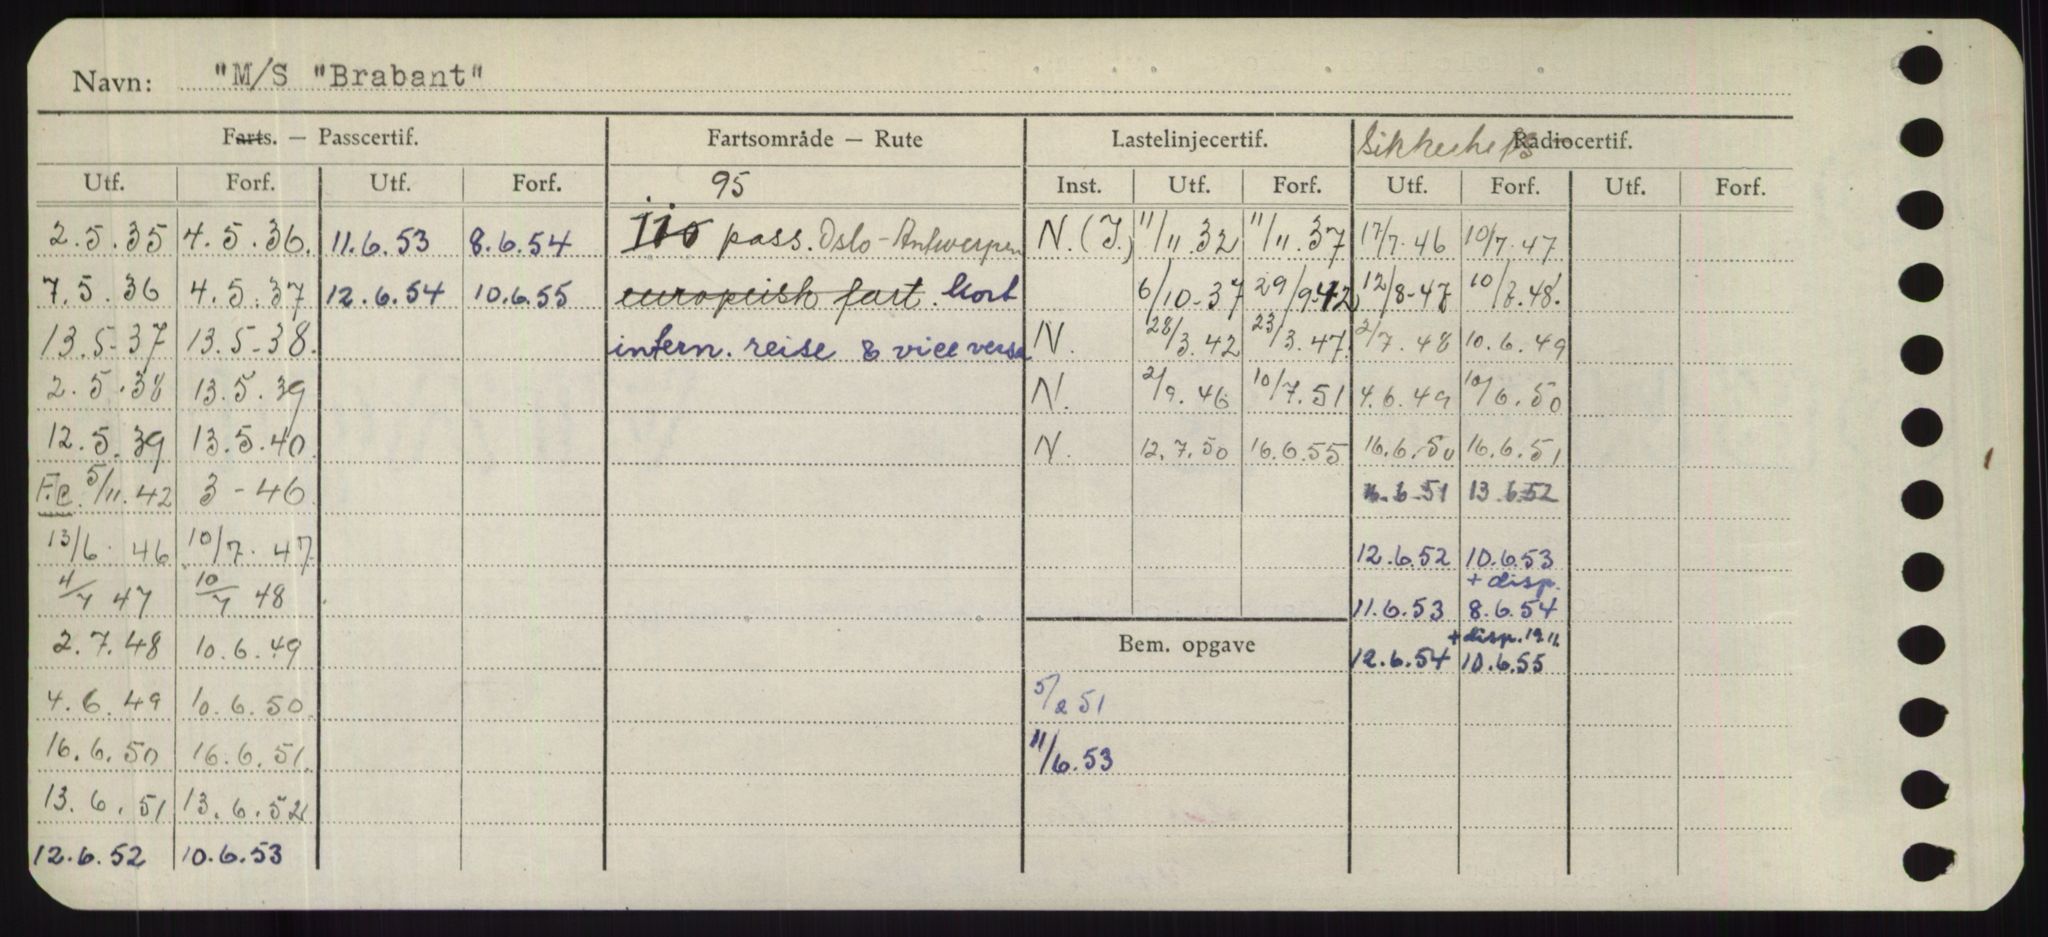 Navn: "M/S "Brabant"
Farts. — Passcertif. Fartsområde — Rute Lastelinjecertif. Sikkerhets Radiocertif.
Utf. Forf. Utf. Forf. 95 Inst. Utf. Forf. Utf. Forf. Utf. Forf.
2.5.35 4.5.36. 11.6.53 8.6.54 110 pass. Oslo-Antwerpen N.(I.) 11/11.32 11/11.37 17/7.46 10/7.47
7.5.36 4.5.37 12.6.54 10.6.55 europeisk fart. Kort 6/10-37 29/9.42 12/8-47 10/7.48.
13.5-37 13.5-38. intern. reise & vice versa N. 28/3.42 23/3.47 2/7.48 10.6.49
2.5.38 13.5.39 N. 2/9.46 10/7.51 4.6.49 10/6.50
12.5.39 13.5.40 N. 12.7.50 16.6.55 16.6.50 16.6.51
F.C. 5/11.42 3-46 6.51 13.6.52
13/6.46 10/7.47 12.6.52 10.6.53
+ disp.
4/7 47 10/7 48 11.6.53 8.6.54
2.7.48 10.6.49 Bem. opgave + disp. 19 11.
12.6.54 10.6.55
4.6.49 10.6.50 5/2 51
16.6.50 16.6.51 11/6.53
13.6.51 13.6.52
12.6.52 10.6.53